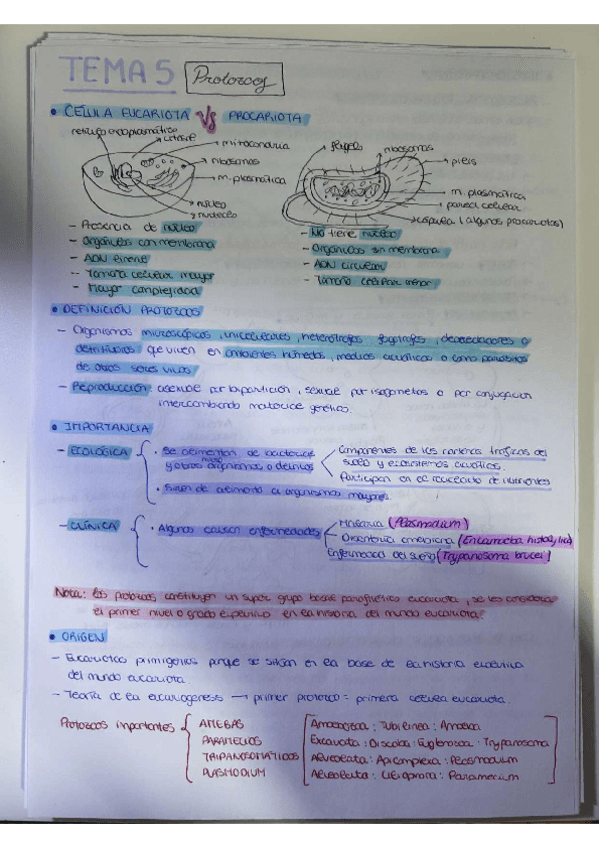 TEMA 5 Protozoos
• CÉLULA EUCARIOTA VS PROCARIOTA
retículo endoplasmático
citosol
mitocondria
ribosomas
m. plasmática
núcleo
y nucleolo
flagelo
ribosomas
pilis
m. plasmática
pared celular
cápsula (algunas procariotas)
- Presencia de núcleo
- Orgánulos con membrana
- ADN lineal
- Tamaño celular mayor
- Mayor complejidad
- No tiene núcleo
- Orgánulos sin membrana
- ADN circular
- Tamaño celular menor
• DEFINICIÓN PROTOZOOS
- Organismos microscópicos, unicelulares, heterótrofos, fagótrofos, depredadores o
detritívoros que viven en ambientes húmedos, medios acuáticos o como parásitos
de otros seres vivos.
- Reproducción: asexual por bipartición, sexual por isogametos o por conjugación
intercambiando material genético.
• IMPORTANCIA
- ECOLÓGICA
• Se alimentan de bacterias
y otros organismos o detritus
Componentes de las cadenas tróficas del
suelo y ecosistemas acuáticos.
Participan en el reciclado de nutrientes
• Sirven de alimento a organismos mayores.
- CLÍNICA
• Algunos causan enfermedades
Malaria (Plasmodium)
Disentería amebiana (Entamoeba histolytica)
Enfermedad del sueño (Trypanosoma brucei)
Nota: los protozoos constituyen un super grupo basal parafilético eucariota, se les considera
el primer nivel o grado evolutivo en la historia del mundo eucariota.
• ORIGEN
- Eucariotas primigenios porque se sitúan en la base de la historia evolutiva
del mundo eucariota
- Teoría de la eucariogénesis → primer protozoo = primera célula eucariota.
Protozoos importantes
AMEBAS
PARAMECIOS
TRIPANOSOMÁTIDOS
PLASMODIUM
Amoebozoa: Tubulinea: Amoeba
Excavata: Discoba: Euglenozoa: Trypanosoma
Alveolata: Apicomplexa: Plasmodium
Alveolata: Ciliophora: Paramecium